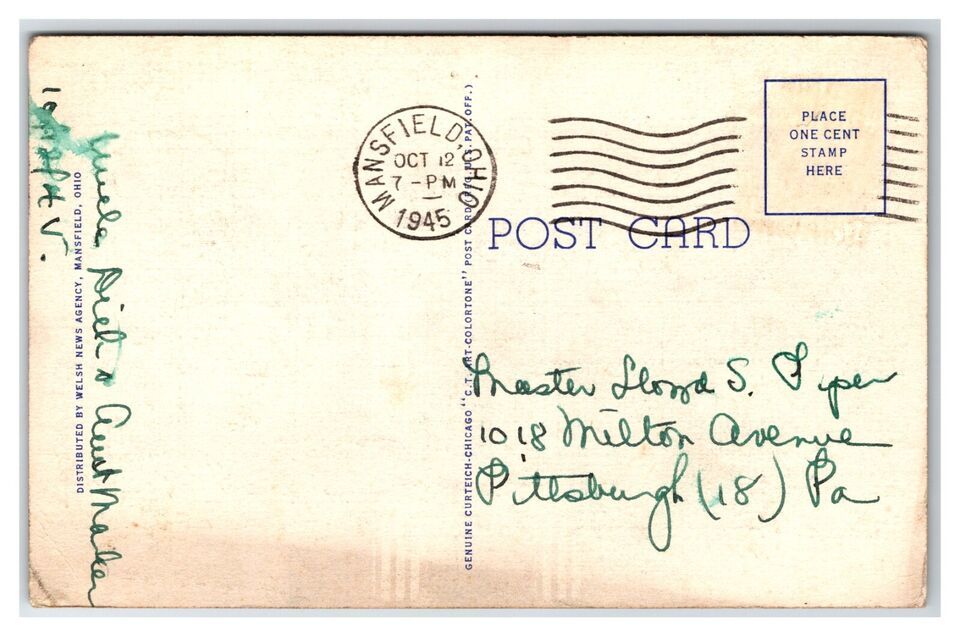 Uncle Dick & Aunt
DISTRIBUTED BY WELSH NEWS AGENCY, MANSFIELD, OHIO
MANSFIELD, OHIO
OCT 12
7 - PM
1945
GENUINE CURTEICH-CHICAGO "C.T. ART-COLORTONE" POST CARD (REG. U.S. PAT. OFF.)
PLACE
ONE CENT
STAMP
HERE
POST CARD
Master Lloyd S. Piper
1018 Milton Avenue
Pittsburgh (18) Pa